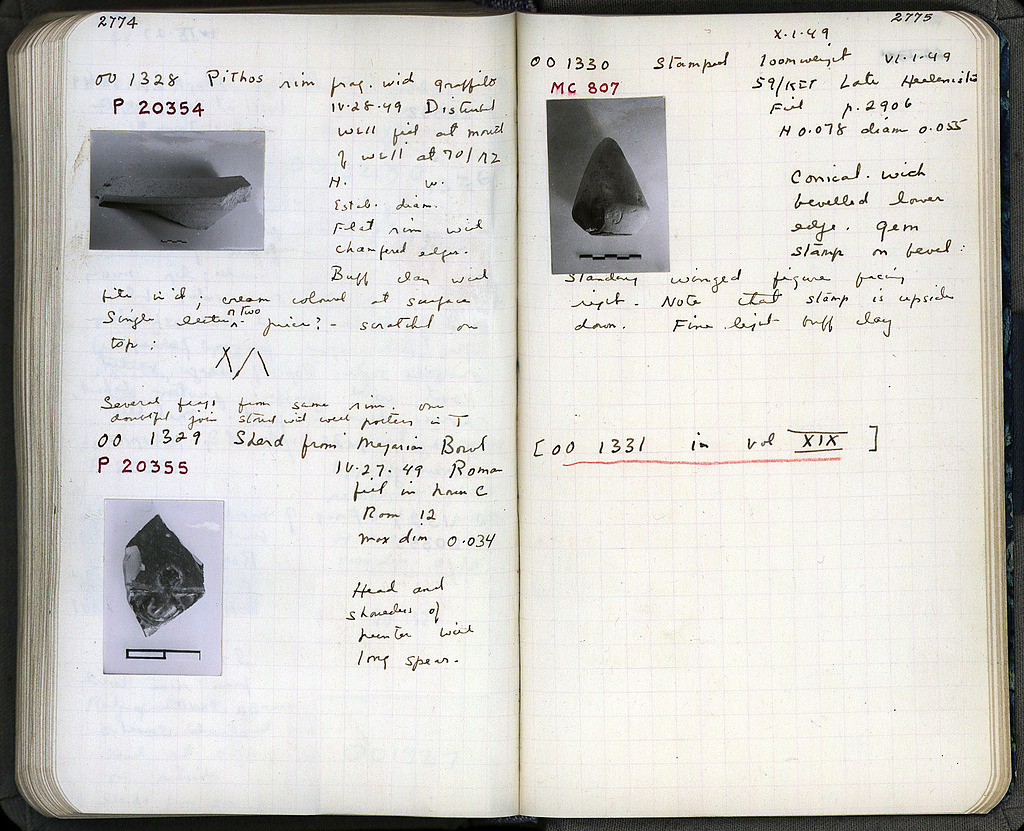 2774
OO 1328 Pithos rim frag. with graffito
P 20354
IV·28·49 Disturbed
well fill at mouth
of well at 70/ΛΖ
H. W.
Estab. diam.
Flat rim with
chamfered edges.
Buff clay with
cream coloured at surface
Single letter n two price? - scratched on
top:
X/Λ
Several frags from same rim. one
doubtful join stored with well pottery in T
OO 1329 Sherd from Megarian Bowl
P 20355
IV·27·49 Roman
fill in house C
Room 12
Max dim 0.034
Head and
shoulders of
hunter with
long spear.
2775
X·1·49
OO 1330 Stamped loomweight VI·1·49
MC 807
59/ Late Hellenistic
Fill p.2906
H 0.078 diam 0.055
Conical. with
bevelled lower
edge. gem
stamp on bevel:
Standing winged figure facing
right. Note that stamp is upside
down. Fine light buff clay
[OO 1331 in vol XIX]